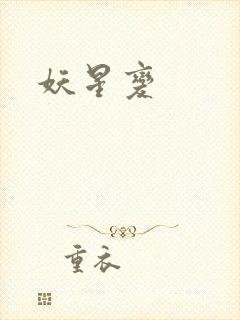 妖星变
重衣